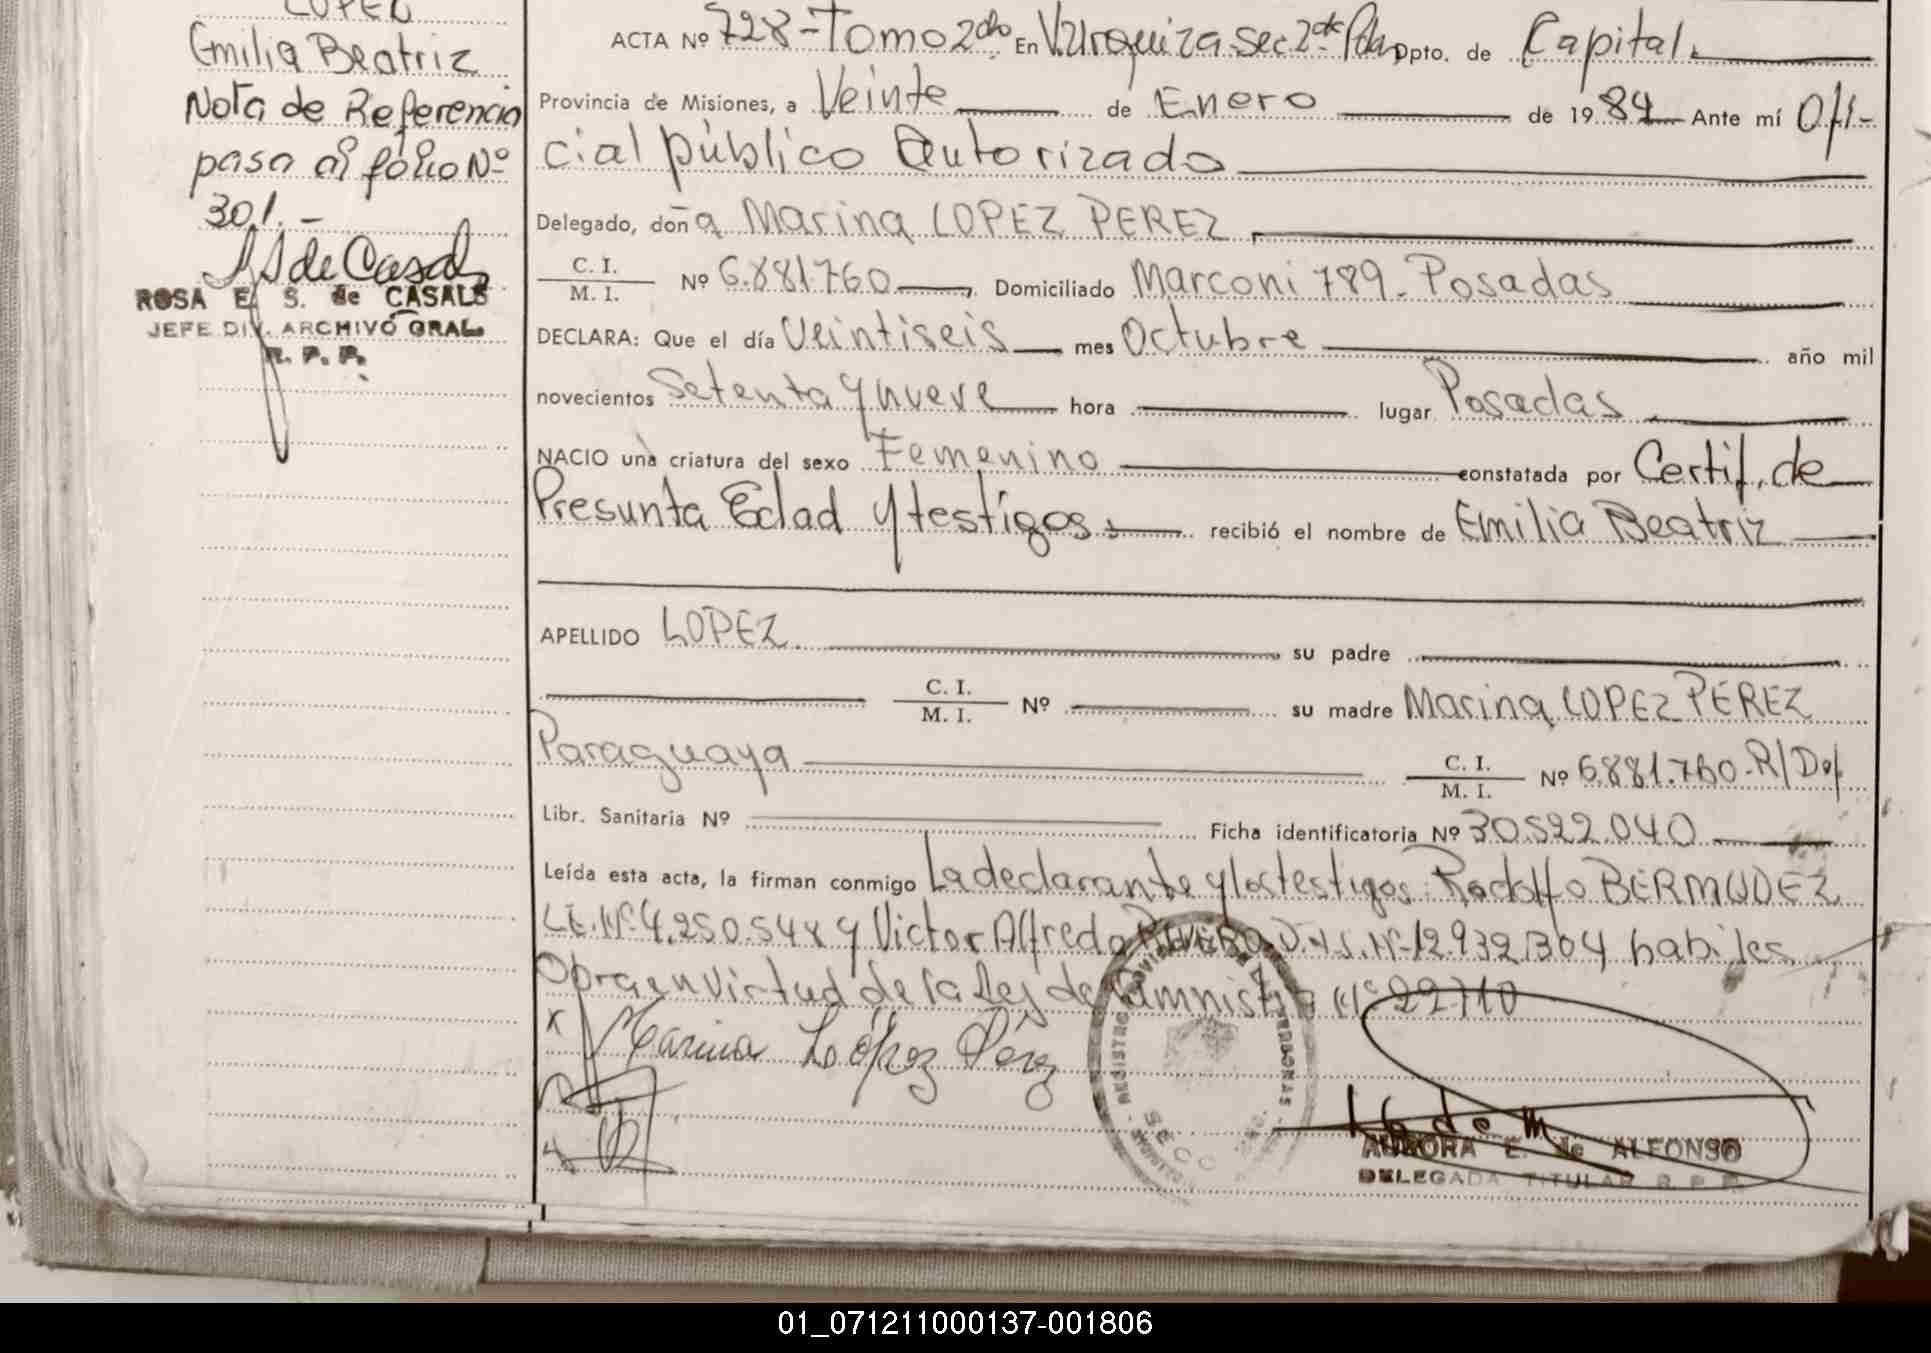 LOPEZ
Emilia Beatriz
Nota de Referencia
pasa al folio Nº
301.-
ROSA E. S. de CASALS
JEFE DIV. ARCHIVO GRAL.
R. P. P.
ACTA Nº 728-Tomo 2do En V. Urquiza sec. 2da Pdas Dpto. de Capital.
Provincia de Misiones, a Veinte de Enero de 1984 Ante mí Ofi-
cial público Autorizado
Delegado, doña Marina LOPEZ PEREZ
C. I.
M. I. Nº 6.881.760 Domiciliado Marconi 789 - Posadas
DECLARA: Que el día Veintiseis mes Octubre año mil
novecientos Setenta y nueve hora lugar Posadas
NACIO una criatura del sexo Femenino constatada por Certif. de
Presunta Edad y testigos recibió el nombre de Emilia Beatriz
APELLIDO LOPEZ. su padre
C. I.
M. I. Nº su madre Marina LOPEZ PEREZ
Paraguaya C. I.
M. I. Nº 6.881.760-R/Def.
Libr. Sanitaria Nº Ficha identificatoria Nº 30.522.040
Leída esta acta, la firman conmigo La declarante y los testigos: Rodolfo BERMUDEZ
L.E. Nº 4.250.548 y Victor Alfredo D.N.I. Nº 12.932.304 habiles
Obra en virtud de la Ley de Amnistía Nº 22710
x Marina López Pérez
REGISTRO PROVINCIAL DE LAS PERSONAS
AURORA E. de ALFONSO
DELEGADA TITULAR R. P. P.
01_071211000137-001806